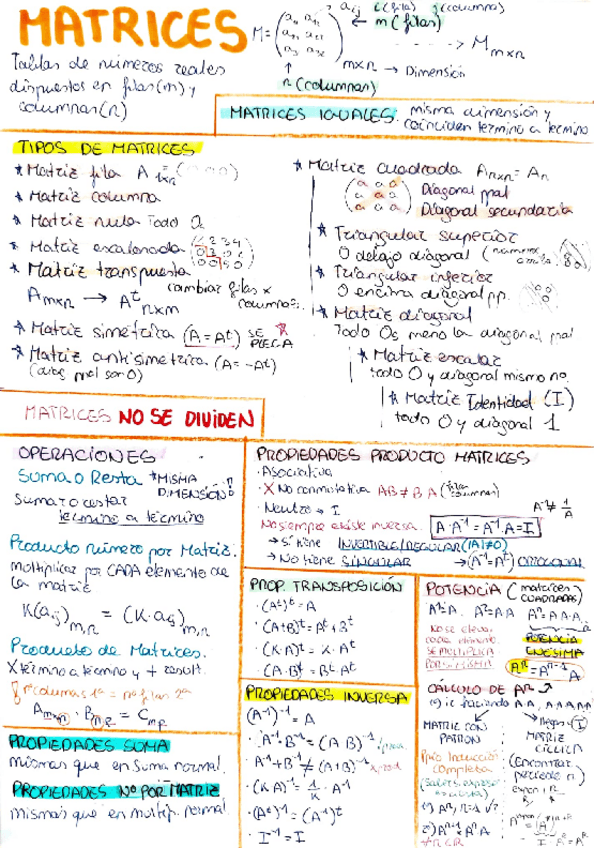 MATRICES
M = (a₁₁ a₁₂
a₂₁ a₂₂
a₃ a₃₂) m×n → Dimensión
aᵢⱼ i (fila) j (columna)
← m (filas)
- - - → M m×n
↑
n (columnas)
Tablas de números reales
dispuestos en filas (m) y
columnas (n)
MATRICES IGUALES. misma dimensión y
coinciden término a término
TIPOS DE MATRICES
* Matriz fila A 1xn = ( )
* Matriz columna
* Matriz nula Todo 0s
* Matriz escalonada
* Matriz transpuesta
cambiar filas x
columnas.
A m×n → Aᵗ n×m
* Matriz simétrica (A = Aᵗ) SE
PLIEGA
* Matriz antisimétrica (A = -Aᵗ)
(diag ppal son 0)
* Matriz cuadrada A n×n = An
(a a a
a a a
a a a) Diagonal ppal
Diagonal secundaria
* Triangular superior
0 debajo diagonal
* Triangular inferior
0 encima diagonal pp.
* Matriz diagonal
Todo 0s meno la diagonal ppal
* Matriz escalar
todo 0 y diagonal mismo no.
* Matriz Identidad (I)
todo 0 y diagonal 1
MATRICES NO SE DIVIDEN
OPERACIONES
Suma o Resta * MISMA
DIMENSIÓN!
Sumar o restar
término a término
Producto número por Matriz.
multiplicar por CADA elemento de
la matriz
K(aᵢⱼ)m,n = (K·aᵢⱼ)m,n
Producto de Matrices.
X término a término y + result.
! nº columnas 1ª = nº filas 2ª
A m×n · B n,p = C m,p
PROPIEDADES SUMA
mismas que en suma normal.
PROPIEDADES Nº POR MATRIZ
mismas que en multip. normal.
PROPIEDADES PRODUCTO MATRICES
· Asociativa
· X No conmutativa AB ≠ BA (fila columnas)
· Neutro → I
A⁻¹ ≠ 1/A
No siempre existe inversa. A·A⁻¹ = A⁻¹·A = I
→ Si tiene INVERTIBLE/REGULAR (|A|≠0)
→ No tiene SINGULAR → (A⁻¹ = Aᵗ) ORTOGONAL
PROP. TRANSPOSICIÓN
· (Aᵗ)ᵗ = A
· (A+B)ᵗ = Aᵗ + Bᵗ
· (K·A)ᵗ = K·Aᵗ
· (A·B)ᵗ = Bᵗ·Aᵗ
PROPIEDADES INVERSA
(A⁻¹)⁻¹ = A
· A⁻¹·B⁻¹ = (A·B)⁻¹
· A⁻¹ + B⁻¹ ≠ (A+B)⁻¹
· (K·A)⁻¹ = 1/K · A⁻¹
· (Aᵗ)⁻¹ = (A⁻¹)ᵗ
· I⁻¹ = I
POTENCIA (matrices
CUADRADAS)
A¹ = A. A² = A·A Aⁿ = A·A·A..
No se eleva
cada elemento.
SE MULTIPLICA
POR SI MISMA
POTENCIA
ENÉSIMA
Aⁿ = Aⁿ⁻¹·A
CÁLCULO DE Aⁿ
ir haciendo A·A, A·A·A
MATRIZ CON
PATRÓN
Ppio Inducción
Completa
llegas I
MATRIZ
CÍCLICA
(Encontrar
período n)